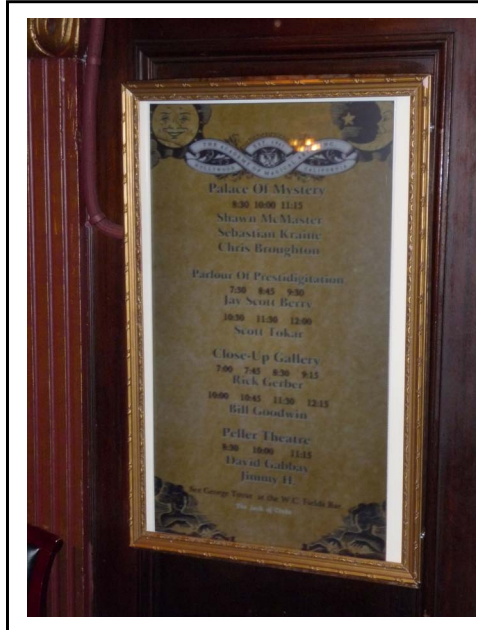 THE ACADEMY OF MAGICAL ARTS
HOLLYWOOD CALIFORNIA
Palace Of Mystery
9:30 10:00 11:15
Shawn McMaster
Sebastian
Chris Broughton
Parlour Of Prestidigitation
7:30 8:45 9:30
Jay Scott Berry
10:30 11:30 12:00
Scott Tokar
Close-Up Gallery
7:00 7:45 8:30 9:15
Rick Gerber
10:00 10:45 11:30 12:15
Bill Goodwin
Peller Theatre
8:30 10:00 11:15
David Gabbay
Jimmy H.
See George Tovar at the W.C. Fields Bar
The Jack of Clubs